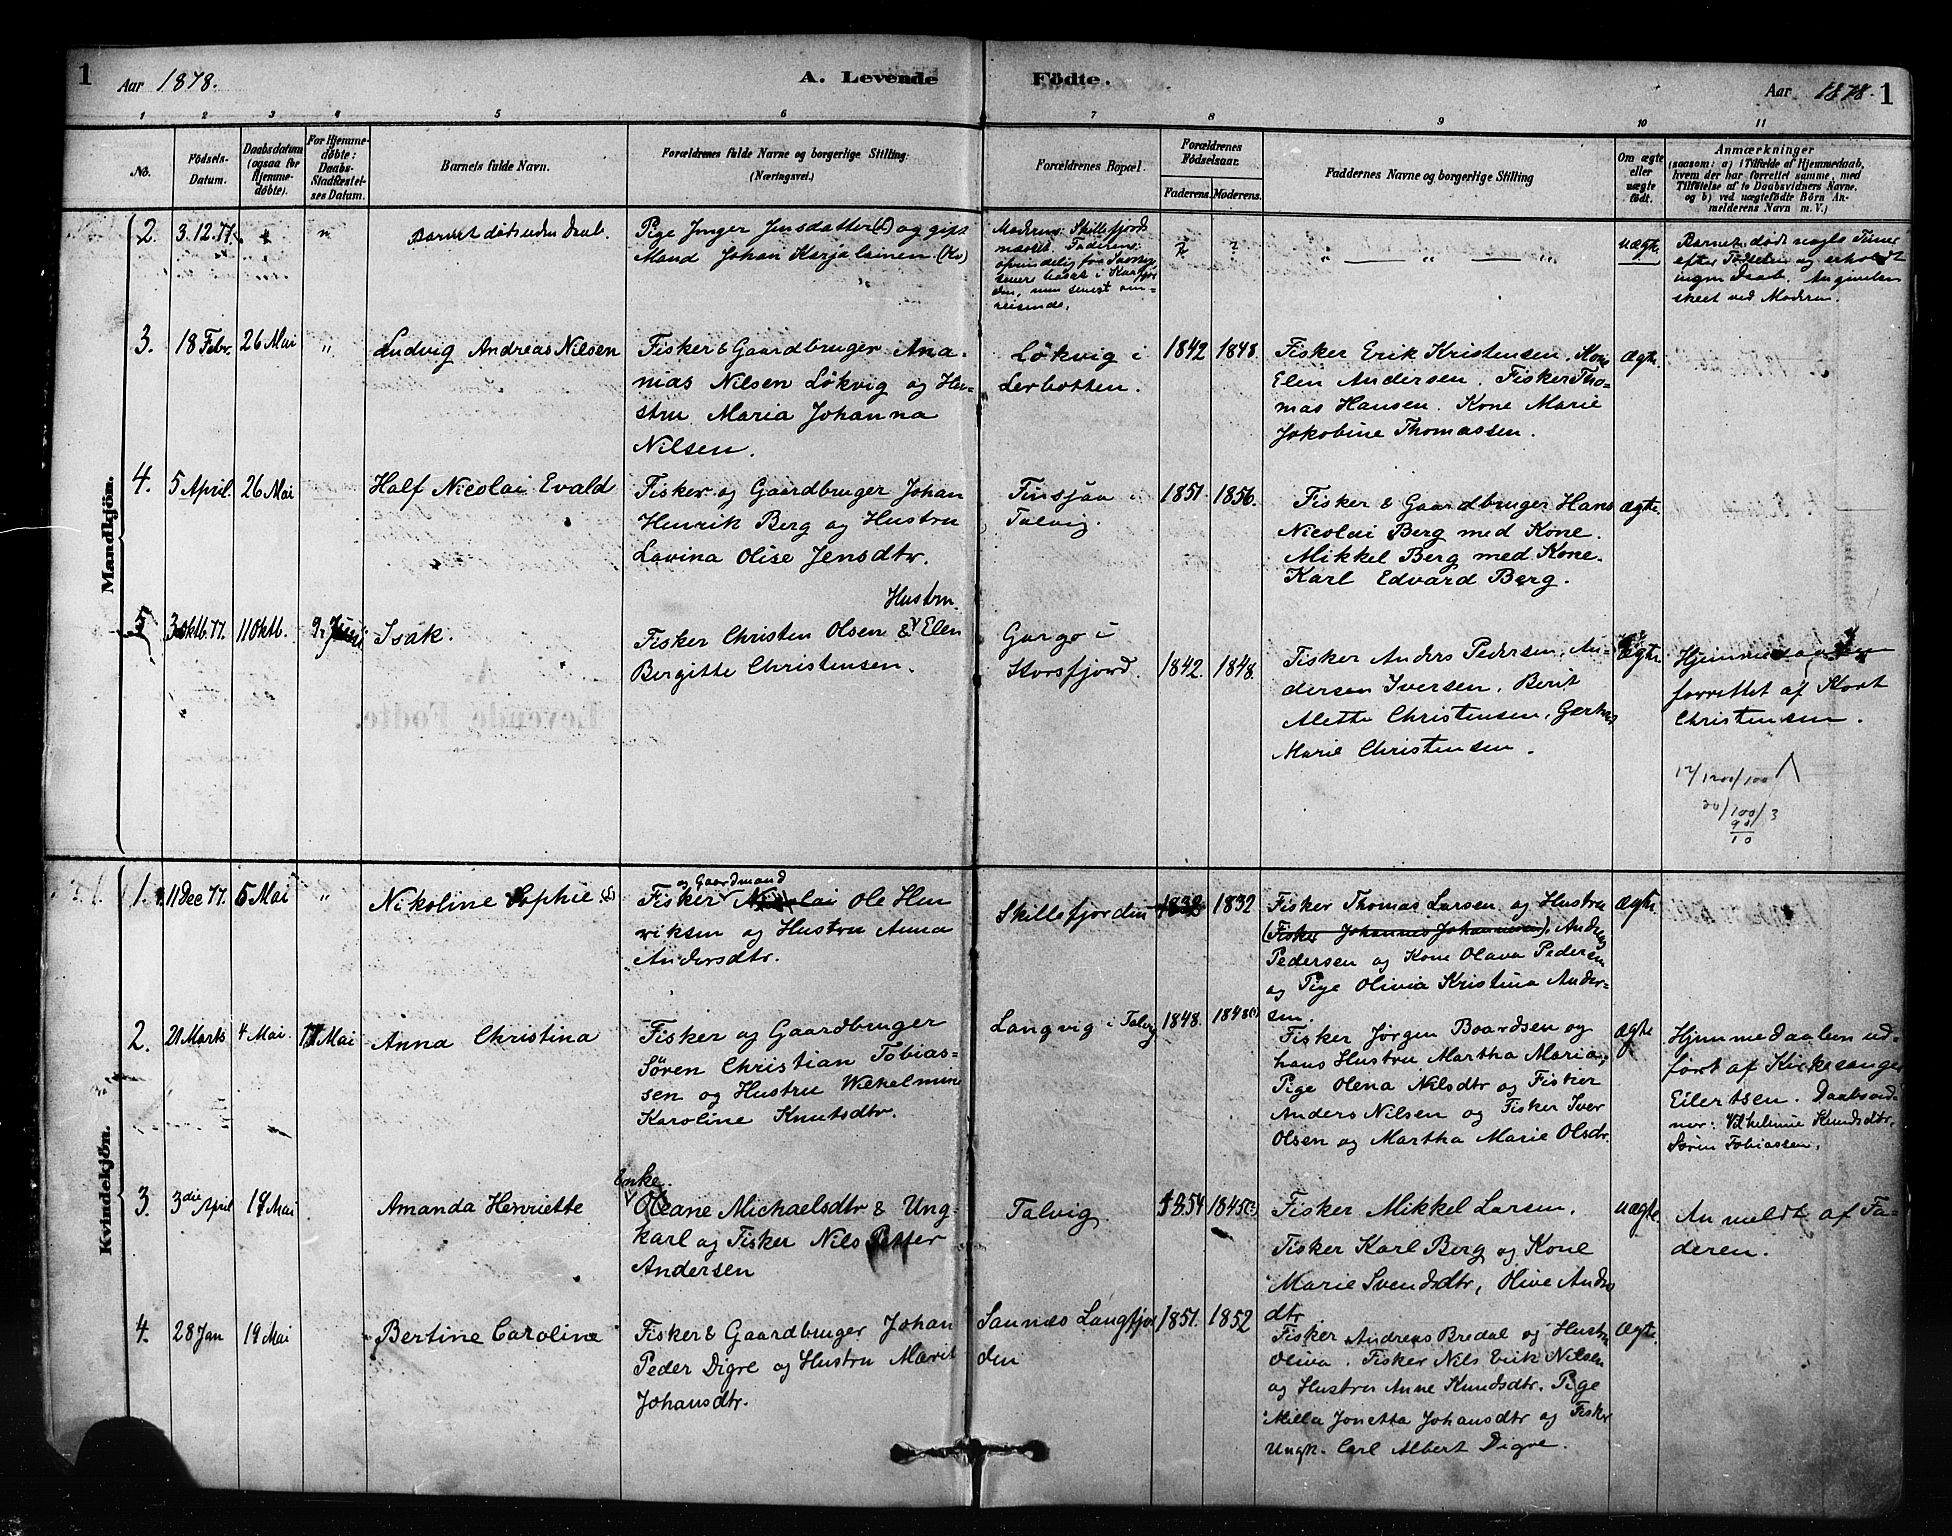 1 Aar 1878. A. Levende Födte. Aar 1878. 1
1 2 3 4 5 6 7 8 9 10 11
No.
Födsels-
Datum.
Daabsdatum
(ogsaa for
Hjemme-
döbte).
For Hjemme-
döbte:
Daabs-
Stadfæstel-
ses Datum.
Barnets fulde Navn.
Forældrenes fulde Navne og borgerlige Stilling.
(Næringsvei.)
Forældrenes Bopæl.
Forældrenes
Födselsaar.
Faderens. Moderens.
Faddernes Navne og borgerlige Stilling
Om ægte
eller
uægte
födt.
Anmærkninger
(saasom: a) i Tilfælde af Hjemmedaab,
hvem der har forrettet samme, med
Tilföielse af to Daabsvidners Navne.
og b) ved uægtefödte Börn An-
melderens Navn m. V.)
Mandkjön.
2. 3.12.77. " "
Barnet döde uden Daab.
Pige Inger Jensdatter (L) og gift
Mand Johan Karjalainen (Kv)
Moderens: Skillefjord
Faderens:
oprindelig fra
senere bosat i Kaafjor
den, men senest om-
reisende.
? ?
" — " — "
uægte.
Barnet döde nogle Timer
efter Födselen og erholdt
ingen Daab. Angivelsen
skeet ved Moderen.
3. 18 Febr. 26 Mai "
Ludvig Andreas Nilsen
Fisker & Gaardbruger Ana-
nias Nilsen Lökvig og Hu-
stru Maria Johanna
Nilsen.
Lökvig i
Lerbotten.
1842 1848.
Fisker Erik Kristensen, Kone
Elen Andersen. Fisker Tho-
mas Hansen. Kone Marie
Jakobine Thomassen.
ægte.
4. 5 April. 26 Mai
Half Nicolai Evald
Fisker og Gaardbruger Johan
Henrik Berg og Hustru
Lavina Olise Jensdtr.
Finsjaa i
Talvig.
1851. 1856.
Fisker & Gaardbruger Hans
Nicolai Berg med Kone.
Mikkel Berg med Kone.
Karl Edvard Berg.
ægte.
5 3 Oktb. 77. 11 Oktb. 9. Juni
Isak.
Hustru
Fisker Christen Olsen & Elen
Bergitte Christensen.
Gargo i
Storsfjord.
1842. 1848.
Fisker Anders Pedersen, An-
dersen Iversen, Berit
Mette Christensen,
Marie Christensen.
ægte.
Hjemmedaaben
forrettet af Kort
Christensen.
12/1200/100
30/100/3
90
10
Kvindekjön.
1. 11 Dec 77. 5 Mai "
Nikoline Sophie
og Gaardmand
Fisker Nicolai Ole Hen
riksen og Hustru Anna
Andersdtr.
Skillefjorden
1832
Fisker Thomas Larsen og Hustru
(Fisker Johannes Johannesen), Andreas
Pedersen og Kone Olava Pedersen
og Pige Olivia Kristina Ander-
sen.
ægte.
2. 21 Marts 4 Mai. 17 Mai
Anna Christina
Fisker og Gaardbruger
Sören Christian Tobias-
sen og Hustru Wilhelmine
Karoline Knutsdtr.
Langvig i Talvig
1848. 1848
Fisker Jørgen Boardsen og
hans Hustru Martha Maria,
Pige Olena Nilsdtr og Fisker
Anders Nilsen og Fisker Iver
Olsen og Martha Marie Olsdr.
ægte
Hjemmedaaben ud-
fört af Kirkesanger
Eilertsen. Daabsvid-
ner: Vilhelmine Knudsdtr.
Sören Tobiassen.
3. 3die April 19 Mai
Amanda Henriette
Enke.
Oleane Michaelsdtr & Ung-
karl og Fisker Nils Petter
Andersen
Talvig.
1854 1845
Fisker Mikkel Larsen,
Fisker Karl Berg og Kone
Marie Svendsdtr, Olive Anders
dtr
uægte.
Anmeldt af Fa-
deren.
4. 28 Jan 19 Mai
Bertine Caroline
Fisker & Gaardbruger Johan
Peder Digre og Hustru Marit
Johansdtr.
Sannæs Langfjor
den
1851. 1852
Fisker Andreas Bredal og Hustru
Oliva. Fisker Nils Erik Nilsen
og Hustru Anne Knudsdtr. Pige
Milla Jonetta Johansdtr og Fisker
Ungk. Carl Albert Digre.
ægte.